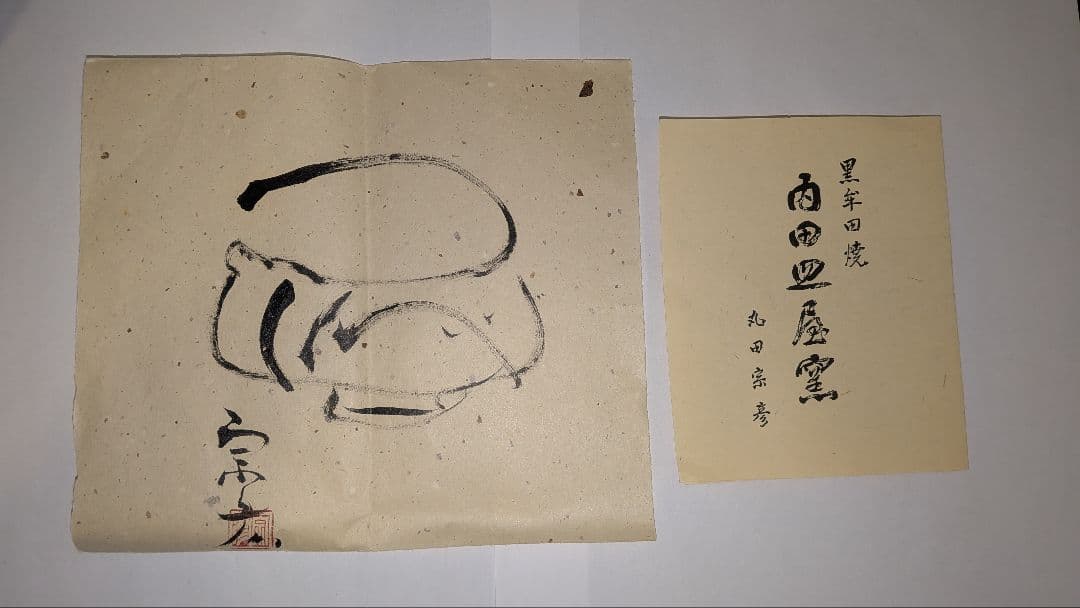 宗彦
黒牟田焼
内田皿屋窯
丸田宗彦